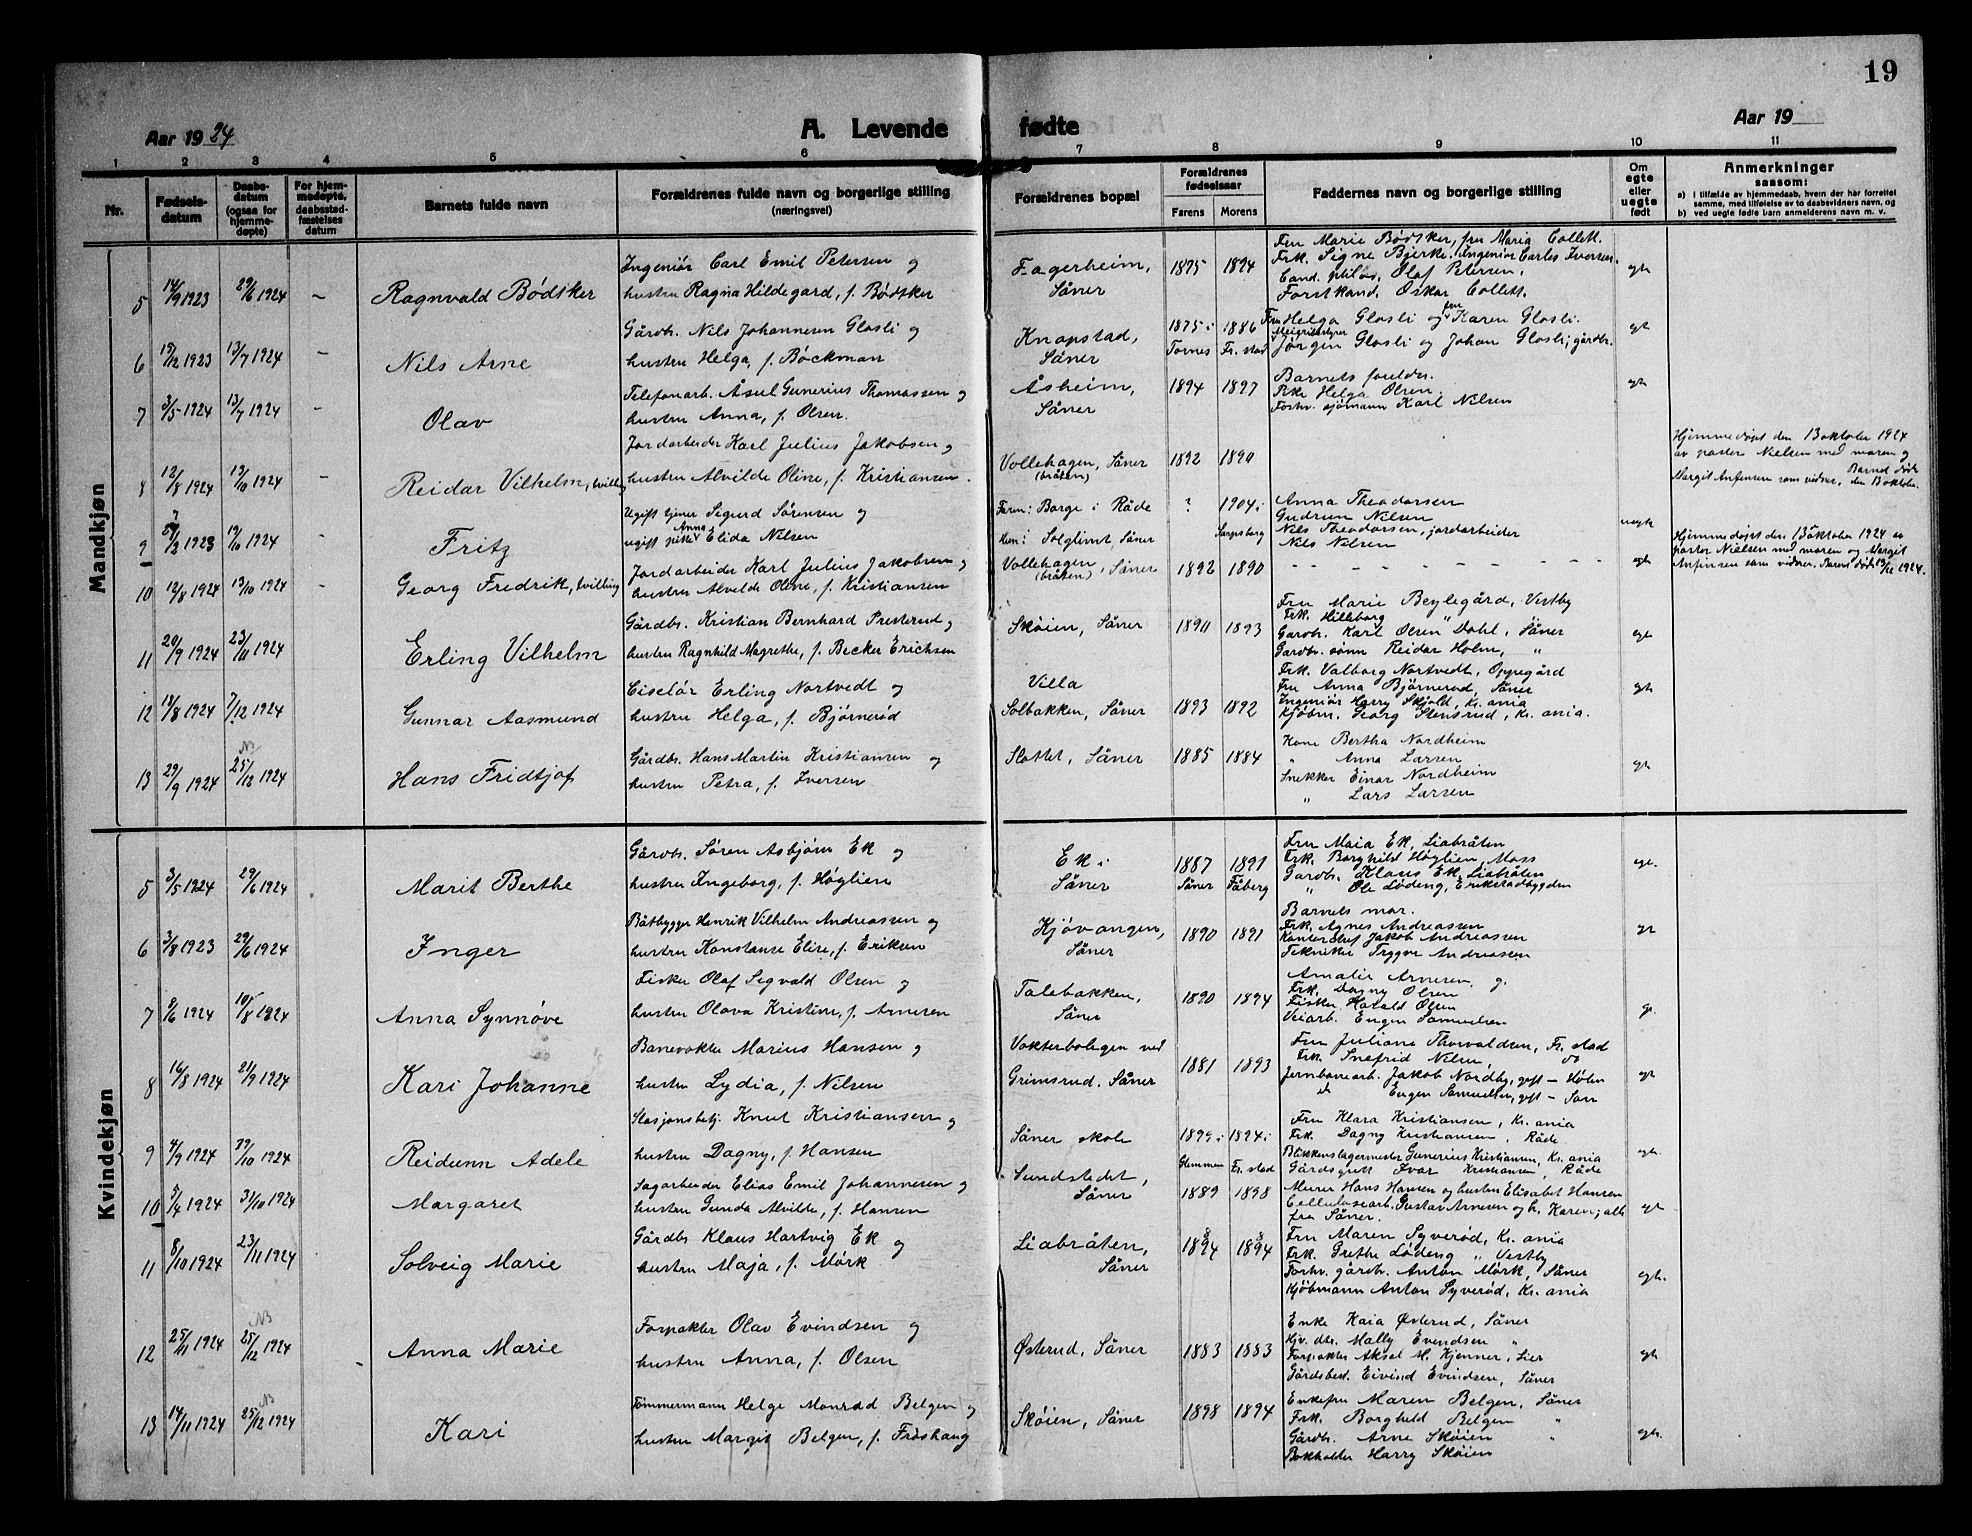 19
Aar 1924
A. Levende fødte
Aar 19
1 2 3 4 5 6 7 8 9 10 11
Nr.
Fødsels-
datum
Daabs-
datum
(ogsaa for
hjemme-
døpte)
For hjem-
medøpte,
daabsstad-
fæstelses
datum
Barnets fulde navn
Forældrenes fulde navn og borgerlige stilling
(næringsvei)
Forældrenes bopæl
Forældrenes
fødselsaar
Farens
Morens
Faddernes navn og borgerlige stilling
Om
egte
eller
uegte
født
Anmerkninger
sassom:
a) I tilfælde av hjemmedaab, hvem der har forrettet
samme, med tilføielse av to daabsvidners navn, og
b) ved uegte fødte barn anmelderens navn m. v.
Mandkjøn
5 14/9 1923 29/6 1924 – Ragnvald Bödtker
Ingeniör Carl Emil Petersen og
hustru Ragna Hildegard, f. Bödtker
Fagerheim,
Såner
1875 1894
Fru Marie Bödtker, fru Maria Collett.
Frk. Signe Bjerke. Ingeniör Carles Iversen.
Cand. philos. Olaf Petersen.
Forstkand. Oskar Collett.
egte
6 15/12 1923 13/7 1924 – Nils Arne
Gårdb. Nils Johannesen Glosli og
hustru Helga, f. Böckman
Knapstad,
Såner
1875 i 1886
Tornes Fr. stad
Fru Helga Glosli og fru Karen Glosli.
Jörgen Glosli og Johan Glosli, gårdb.
egte
7 3/5 1924 13/7 1924 – Olav
Telefonarb. Åsul Gunerius Thomassen og
hustru Anna, f. Olsen.
Åsheim,
Såner
1894 1897
Barnets foreldre.
Frk Helga Olsen.
Forhv. sjömann Karl Nilsen
egte
8 12/8 1924 13/10 1924 – Reidar Vilhelm, tvilling
Jordarbeider Karl Julius Jakobsen og
hustru Alvilde Oline, f. Kristiansen.
Vollehagen, Såner
(bråten)
1892 1890
Hjemmedöpt den 13 oktober 1924
av pastor Nielsen med moren og
Margit Anfinsen som vidner. Barnet död
den 13 oktober.
9 1923 19/10 1924 – Fritz
Ugift tjener Sigurd Sörensen og
ugift pike Anna Elida Nilsen
Faren: Borge i Råde
Hun: Solglimt, Såner
? 1904 i
Sarpsborg
Anna Theodorsen
Gudrun Nilsen
Nils Theodorsen, jordarbeider
Nils Nilsen
uegte
10 12/8 1924 13/10 1924 – Georg Fredrik, tvilling
Jordarbeider Karl Julius Jakobsen og
hustru Alvilde Oline, f. Kristiansen
Vollehagen, Såner
(bråten)
1892 1890
– – – – – – – – –
egte
Hjemmedöpt den 13 oktober 1924 av
pastor Nielsen med moren og Margit
Anfinsen som vidner. Barnet död 1924.
11 20/9 1924 23/11 1924 Erling Vilhelm
Gårdb. Kristian Bernhard Presterud og
hustru Ragnhild Magrethe, f. Becker Erichsen
Sköien, Såner
1890 1893
Fru Marie Beylegård, Vestby
Frk. Hilleborg "
Gårdb. Karl Olsen Dahl, Såner
Gårdb. sönn Reidar Holm, "
egte
12 14/8 1924 7/12 1924 Gunnar Aasmund
Ciselör Erling Nortvedt og
hustru Helga, f. Björneröd
Villa
Solbakken, Såner
1893 1892
Frk. Valborg Nortvedt, Oppegård
Fru Anna Björnerud, Såner
Ingeniör Harry Skjold, Kr. ania
Kjöbm. Georg Stensrud, Kr. ania.
egte
13 29/9 1924 N 25/12 1924 Hans Fridtjof
Gårdb. Hans Martin Kristiansen og
hustru Petra, f. Iversen
Slottet, Såner
1885 1884
Kone Bertha Nordheim
" Anna Larsen
Snekker Einar Nordheim
" Lars Larsen
egte
Kvindekjøn
5 3/5 1924 29/6 1924 Marit Berthe
Gårdb. Sören Asbjörn Ek og
hustru Ingeborg, f. Höglien
Ek i
Såner
1887 1891
Såner Fåberg
Fru Maia Ek, Liabråten
Frk. Borghild Höglien, Moss
Gårdb. Klaus Ek, Liabråten
" Ole Lödeng, Erikstadbygden
egte.
6 3/8 1923 29/6 1924 Inger
Båtbygger Henrik Vilhelm Andreassen og
hustru Konstanse Elise, f. Eriksen
Kjövangen,
Såner
1890 1891
Barnets mor.
Frk. Agnes Andreassen
Kontorchef Jakob Andreassen
Tekniker Trygve Andreassen
egte
7 9/6 1924 10/8 1924 Anna Synnöve
Fisker Olaf Segvald Olsen og
hustru Olava Kristine, f. Arnesen
Talebakken,
Såner
1890 1894
Amalie Arnesen og
Frk. Dagny Olsen
Fisker Harald Olsen
Veiarb. Eugen Samuelsen
8 16/8 1924 21/9 1924 Kari Johanne
Banevokter Marius Hansen og
hustru Lydia, f. Nilsen
Vokterboligen ved
Grimsrud. Såner
1881 1893
Fru Juliane Thorvaldsen, Fr. stad
Frk. Snefrid Nilsen do
Jernbanearb. Jakob Nordby, gift – Hölen
do Eugen Samuelsen, gift – Son
egte
9 4/9 1924 29/10 1924 Reidunn Adele
Stasjonsbetj. Knut Kristiansen og
hustru Dagny, f. Hansen
Såner skole
1899 i 1894 i
Glemmen Fr. stad
Fru Klara Kristiansen, Kr. ania
Frk. Dagny Kristiansen, Råde
Blikkenslagermester Gunerius Kristiansen, Kr. ania
Gårdsgutt Ivar Kristiansen, Råde
egte.
10 5/4 1924 31/10 1924 Margaret
Sagarbeider Elias Emil Johannesen og
hustru Gunda Alvilde, f. Hansen
Sundstedet,
Såner
1889 1898
Murer Hans Hansen og hustru Elisabet Hansen
Cellulosearb. Gustav Arnesen og h. Karen; alle
fra Såner.
egte
11 8/10 1924 23/11 1924 Solveig Marie
Gårdbr Klaus Hartvig Ek og
hustru Maja, f. Mörk
Liabråten,
Såner
1894 1894
Fru Maren Syveröd, Kr. ania
Frk. Grethe Lödeng " Vestby
Forhv. gårdb. Anton Mörk, Såner
Kjöbmann Anton Syveröd, Kr. ania
egte.
12 25/11 1924 NB 25/12 1924 Anna Marie
Forpakter Olav Evindsen og
hustru Anna, f. Olsen
Østerud, Såner
1883 1883
Enke Kaia Österud, Såner
Gjv. dtr. Mally Evendsen "
Forpakter Aksel M. Kjenner, Lier
Gårdsbest. Eivind Evindsen, Såner
egte.
13 14/11 1924 NB 25/12 1924 Kari
Tömmermann Helge Monrad Belgen og
hustru Margit Belgen, f. Fröshaug
Sköien, Såner
1898 1894
Enkefru Maren Belgen, Såner
Frk. Borghild Belgen "
Gårdb. Arne Sköien "
Bokholder Harry Sköien
egte.